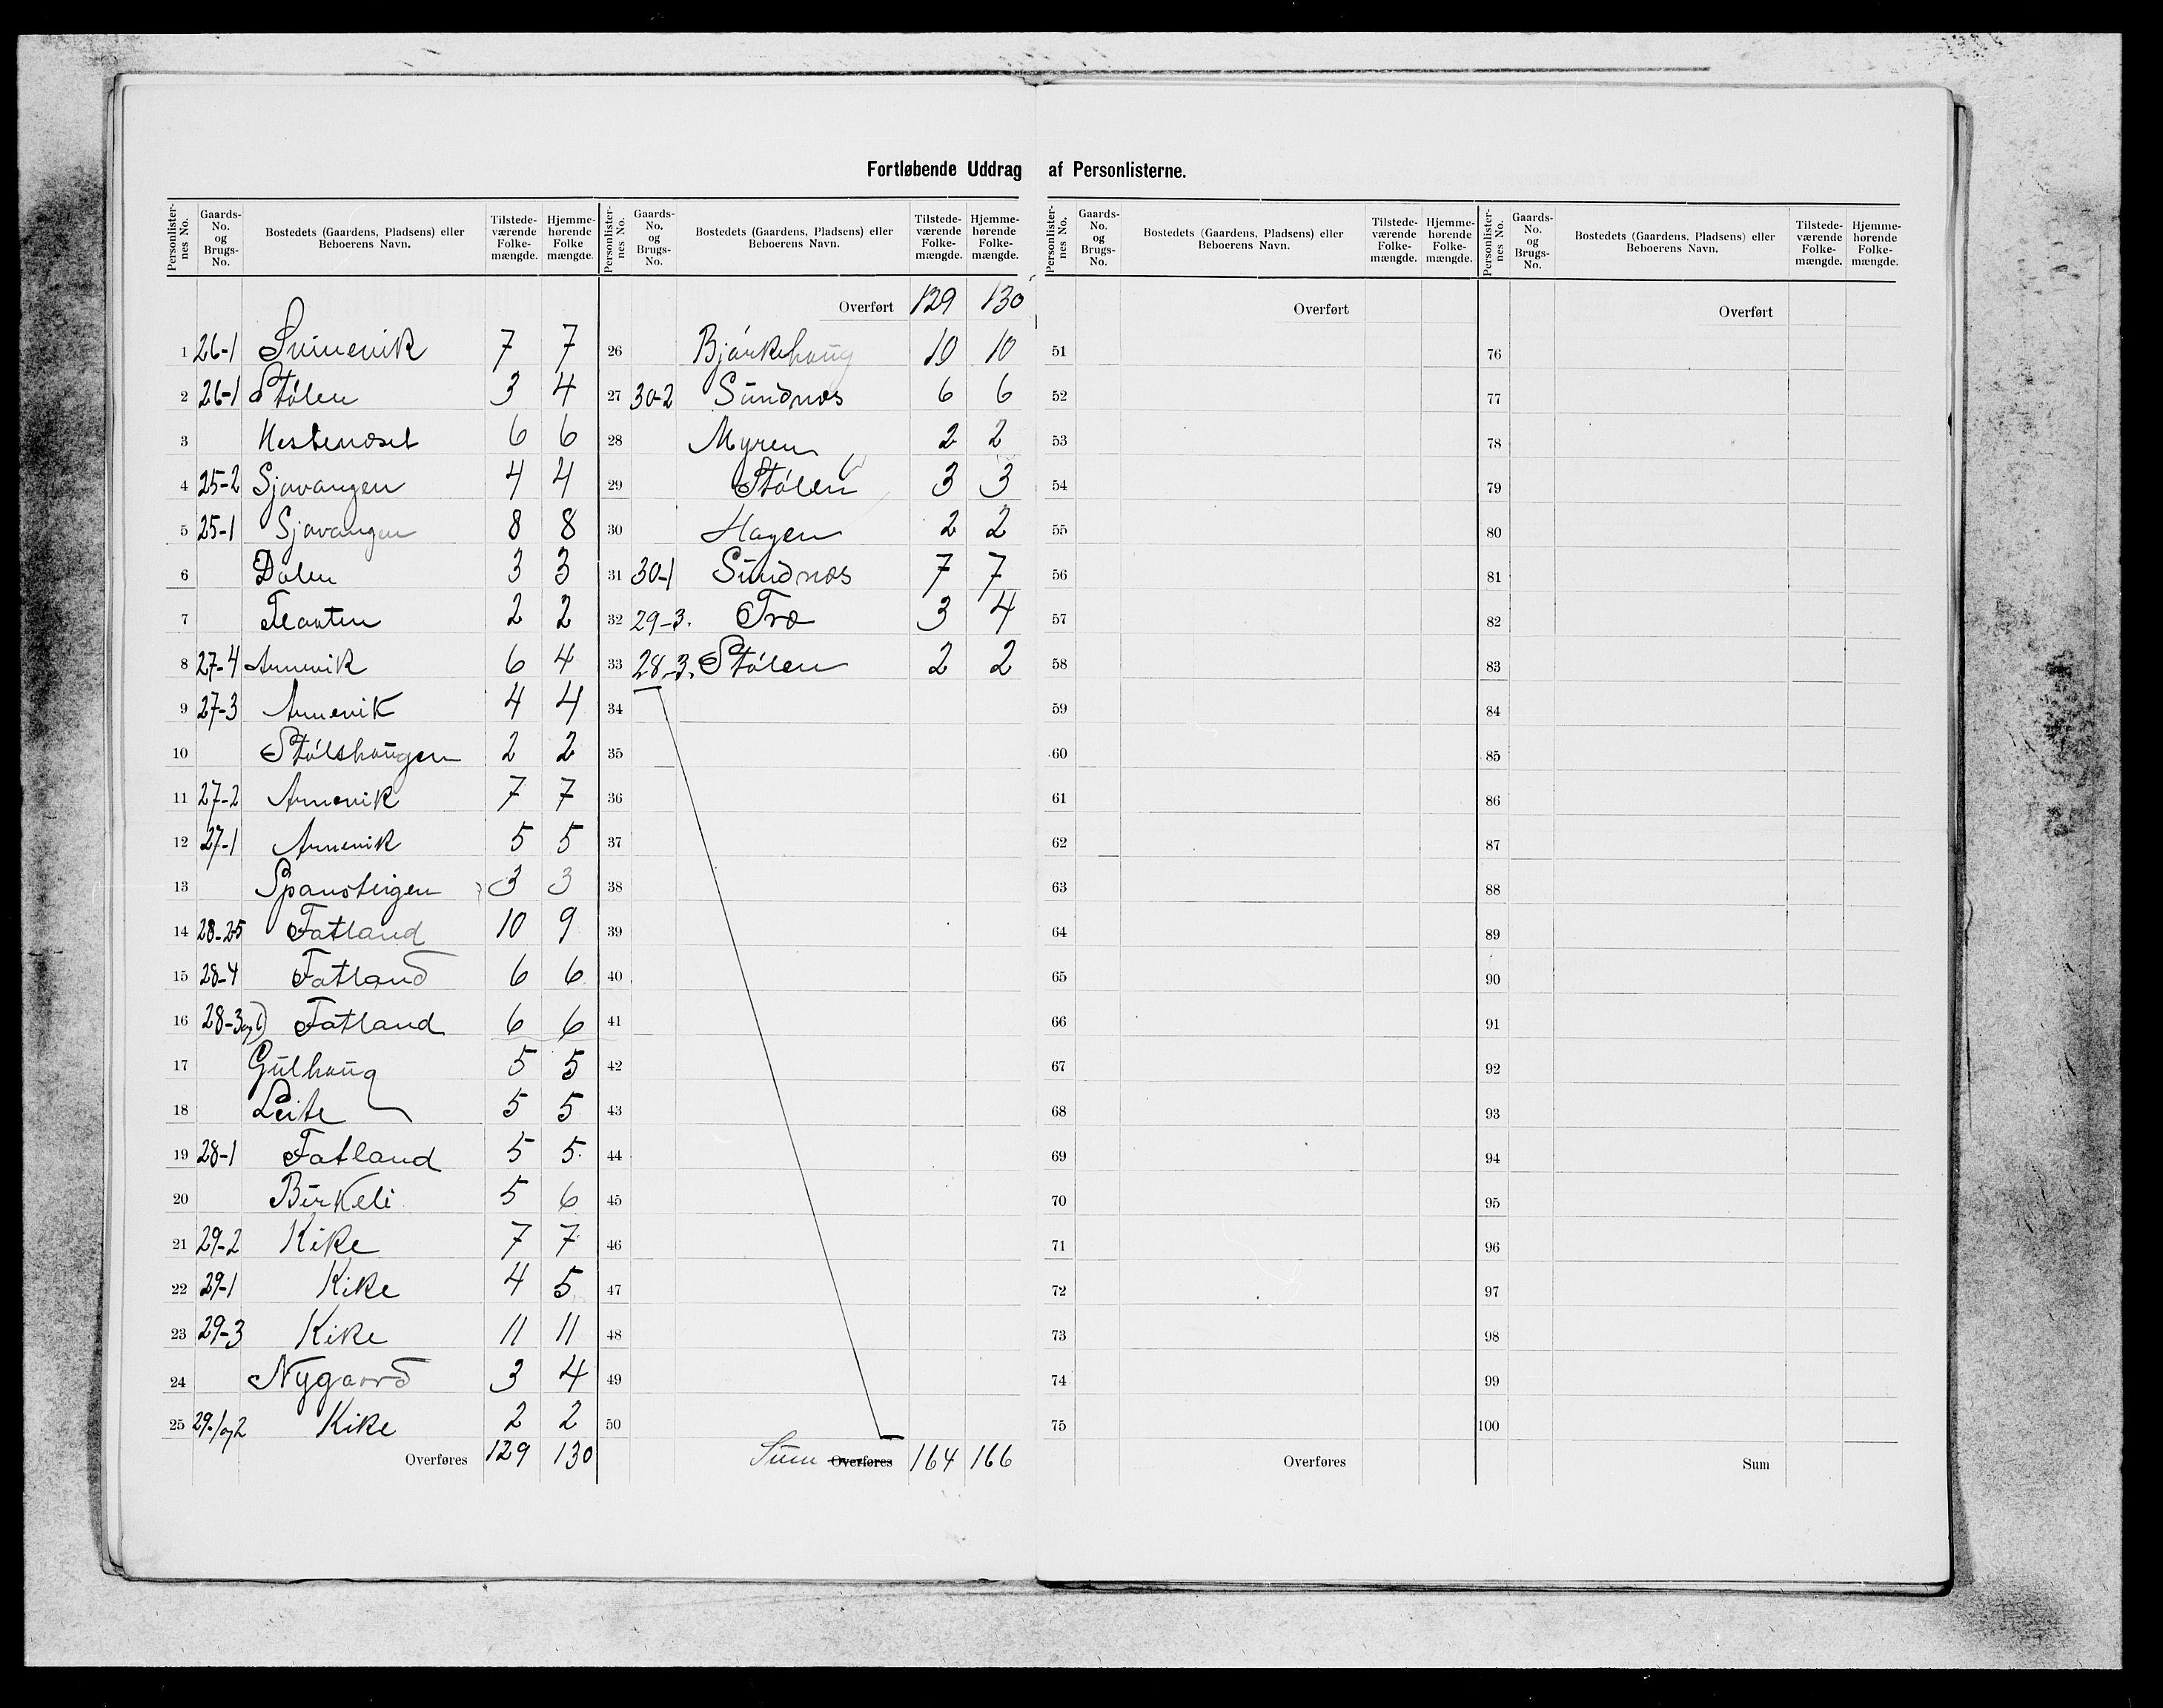 Fortløbende Uddrag af Personlisterne.
Personlister-nes No. Gaards-No. og Brugs-No. Bostedets (Gaardens, Pladsens) eller Beboerens Navn. Tilstede-værende Folke-mængde. Hjemme-hørende Folke mængde.
1 26-1 Svinevik 7 7
2 26-1 Stólen 3 4
3 Hesteneset 6 6
4 25-2 Sjovangen 4 4
5 25-1 Sjovangen 8 8
6 Dalen 3 3
7 Flaaten 2 2
8 27-4 Arnevik 6 4
9 27-3 Arnevik 4 4
10 Stólshaŭgen 2 2
11 27-2 Arnevik 7 7
12 27-1 Arnevik 5 5
13 Spansteigen 3 3
14 28-25 Fatland 10 9
15 28-4 Fatland 6 6
16 28-3og6) Fatland 6 6
17 Gŭlhaŭg 5 5
18 Leite 5 5
19 28-1 Fatland 5 5
20 Birkeli 5 6
21 29-2 Kike 7 7
22 29-1 Kike 4 5
23 29-3 Kike 11 11
24 Nygaard 3 4
25 29-1og2 Kike 2 2
Overføres 129 130
Personlister-nes No. Gaards-No. og Brugs-No. Bostedets (Gaardens, Pladsens) eller Beboerens Navn. Tilstede-værende Folke-mængde. Hjemme-hørende Folke-mængde.
Overført 129 130
26 Bjórkehaŭg 10 10
27 30-2 Sŭndnes 6 6
28 Myren 2 2
29 Stólen 3 3
30 Hagen 2 2
31 30-1 Sŭndnes 7 7
32 29-3. Træ 3 4
33 28-3. Stólen 2 2
34
35
36
37
38
39
40
41
42
43
44
45
46
47
48
49
50
Sŭm Overføres 164 166
Personlister-nes No. Gaards-No. og Brugs-No. Bostedets (Gaardens, Pladsens) eller Beboerens Navn. Tilstede-værende Folke-mængde. Hjemme-hørende Folke-mængde.
Overført
51
52
53
54
55
56
57
58
59
60
61
62
63
64
65
66
67
68
69
70
71
72
73
74
75
Overføres
Personlister-nes No. Gaards-No. og Brugs-No. Bostedets (Gaardens, Pladsens) eller Beboerens Navn. Tilstede-værende Folke-mængde. Hjemme-hørende Folke-mængde.
Overført
76
77
78
79
80
81
82
83
84
85
86
87
88
89
90
91
92
93
94
95
96
97
98
99
100
Sum